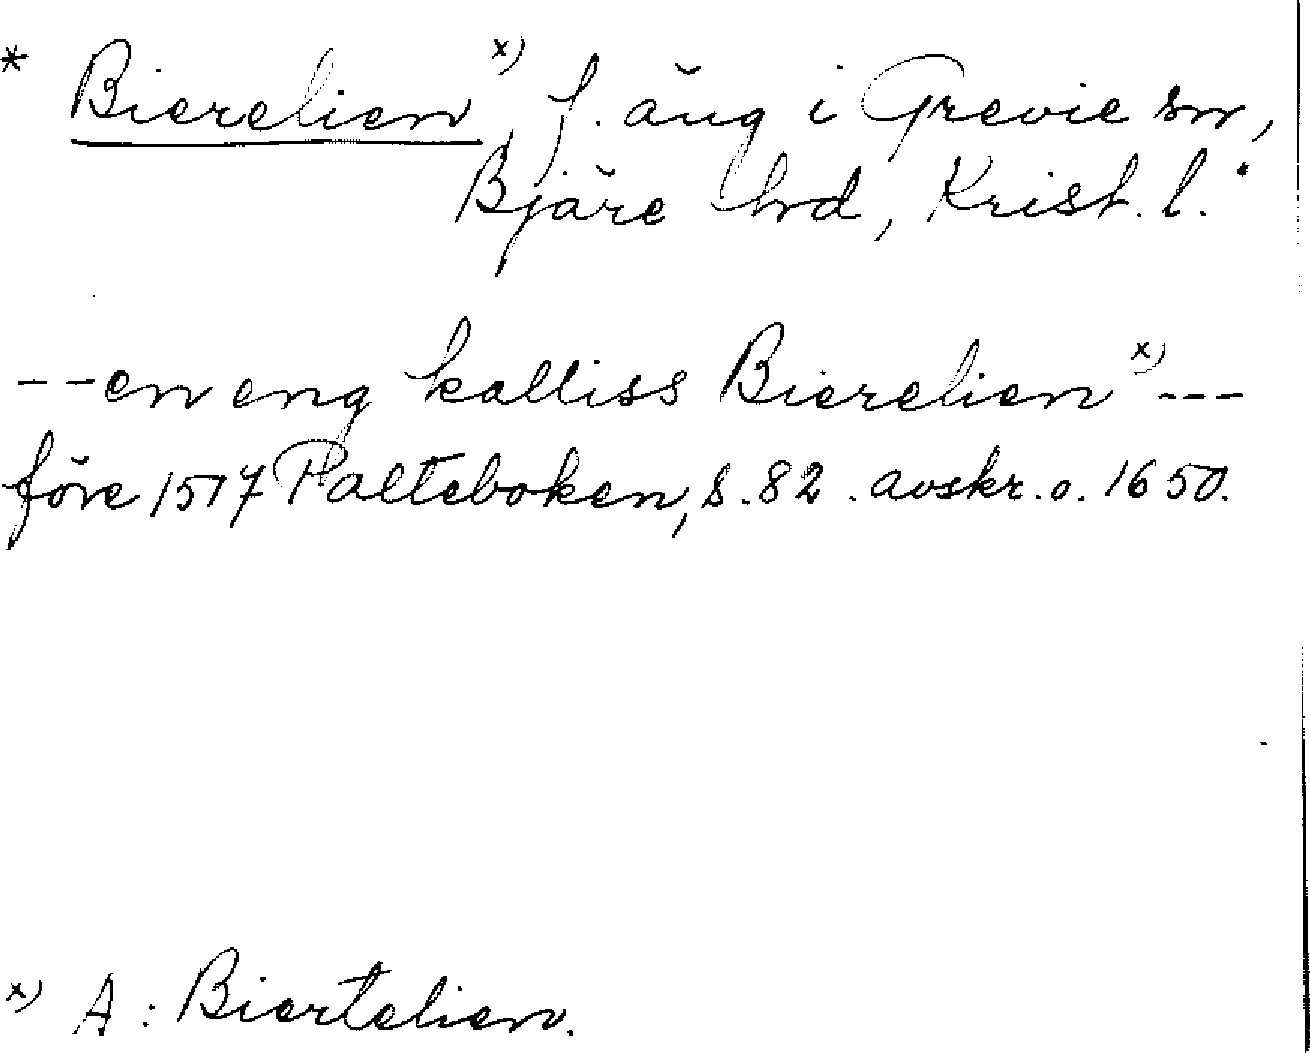 * Bierelien x), f. äng i Grevie sn,
Bjäre hrd, Krist. l.
-- en eng kalliss Bierelien x) ---
före 1517 Palteboken, s. 82. avskr. o. 1650.
x) A: Biertelien.